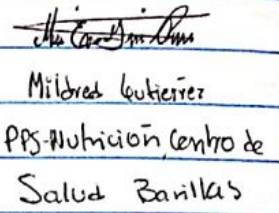 Mildred Gutierrez
PPS-Nutrición Centro de
Salud Barillas